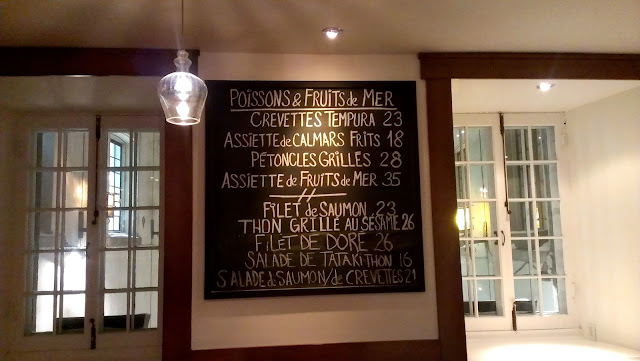 POISSONS & FRUITS de MER
CREVETTES TEMPURA 23
ASSIETTE de CALMARS FRITS 18
PÉTONCLES GRILLÉS 28
ASSIETTE de FRUITS de MER 35
FILET de SAUMON 23
THON GRILLÉ AU SÉSAME 26
FILET DE DORÉ 26
SALADE DE TATAKI THON 16
SALADE de SAUMON/de CREVETTES 21